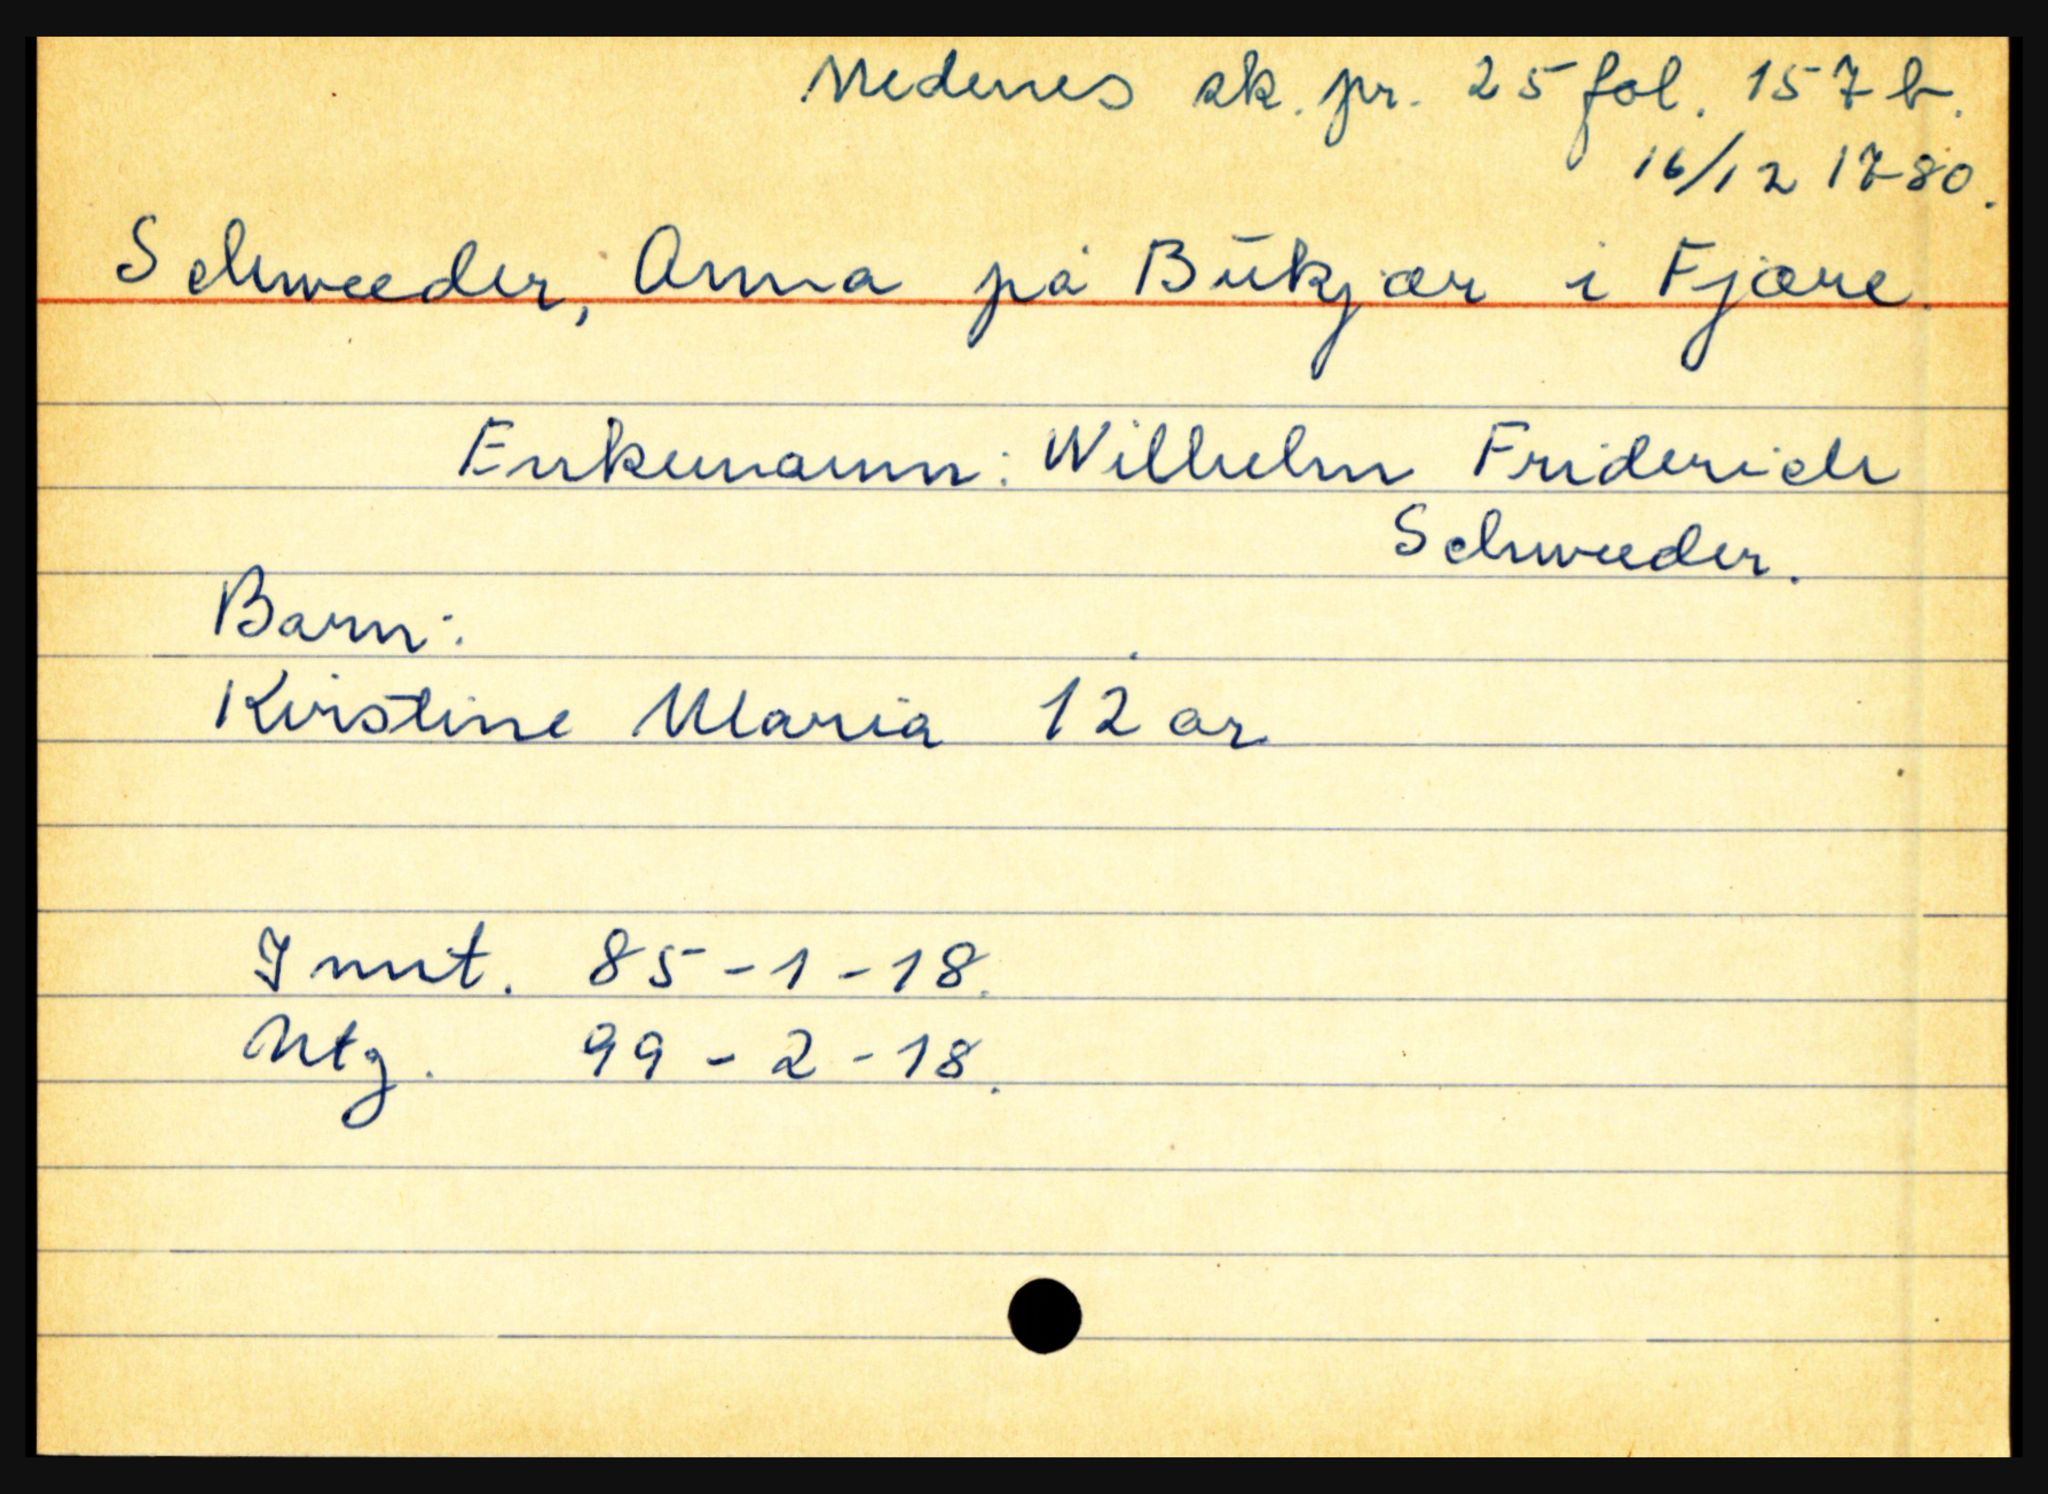 Nedenes sk. pr. 25 fol. 157 b.
16/12 1780.
Schweeder, Anna på Bükjær i Fjære.
Enkemann: Wilhelm Friderich
Schweeder.
Barn:
Kirstine Maria 12 år
Innt. 85-1-18.
Utg. 99-2-18.